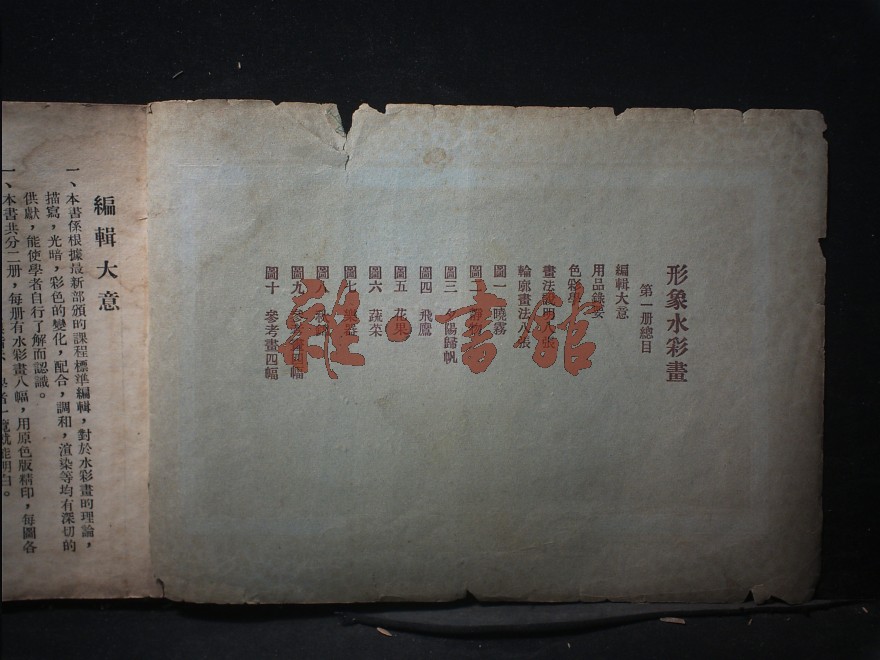 形象水彩畫
第一册總目
編輯大意
用品錄要
色彩學
畫法說明八張
輪廓畫法八張
圖一 曉霧
圖二 靜物
圖三 夕陽歸帆
圖四 飛鷹
圖五 花果
圖六 蔬菜
圖七 樂器
圖八
圖九 參考畫四幅
圖十 參考畫四幅
雜·書館
編輯大意
一、本書係根據最新部頒的課程標準編輯，對於水彩畫的理論，
描寫，光暗，彩色的變化，配合，調和，渲染等均有深切的
供獻，能使學者自行了解而認識。
一、本書共分二册，每册有水彩畫八幅，用原色版精印，每圖各